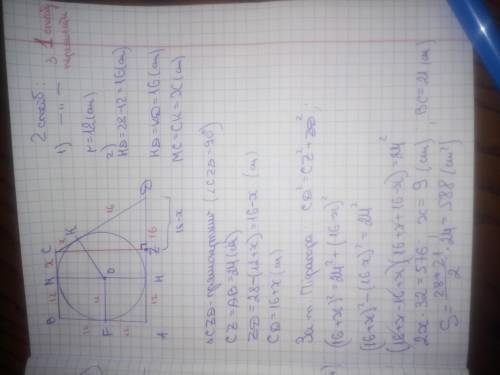 2 спосіб:
1) — " — з 1 способу
r = 12 (см)
2)
HD = 28-12 = 16 (см)
HD = KD = 16 (см)
MC = CK = x (см)
B 12 M x C
x
K
16
12
F 12 O
12
A 12 H Z 16 D
16-x
△CZD - прямокутний (∠CZD = 90°)
CZ = AB = 24 (см)
ZD = 28-(12+x) = 16-x (см)
CD = 16+x (см)
За т. Піфагора CD² = CZ² + ZD²;
(16+x)² = 24² + (16-x)²
(16+x)² - (16-x)² = 24²
(16+x-16+x)(16+x+16-x) = 24²
2x · 32 = 576; x = 9 (см) BC = 21 (см)
S = 28+21 / 2 · 24 = 588 (см²)